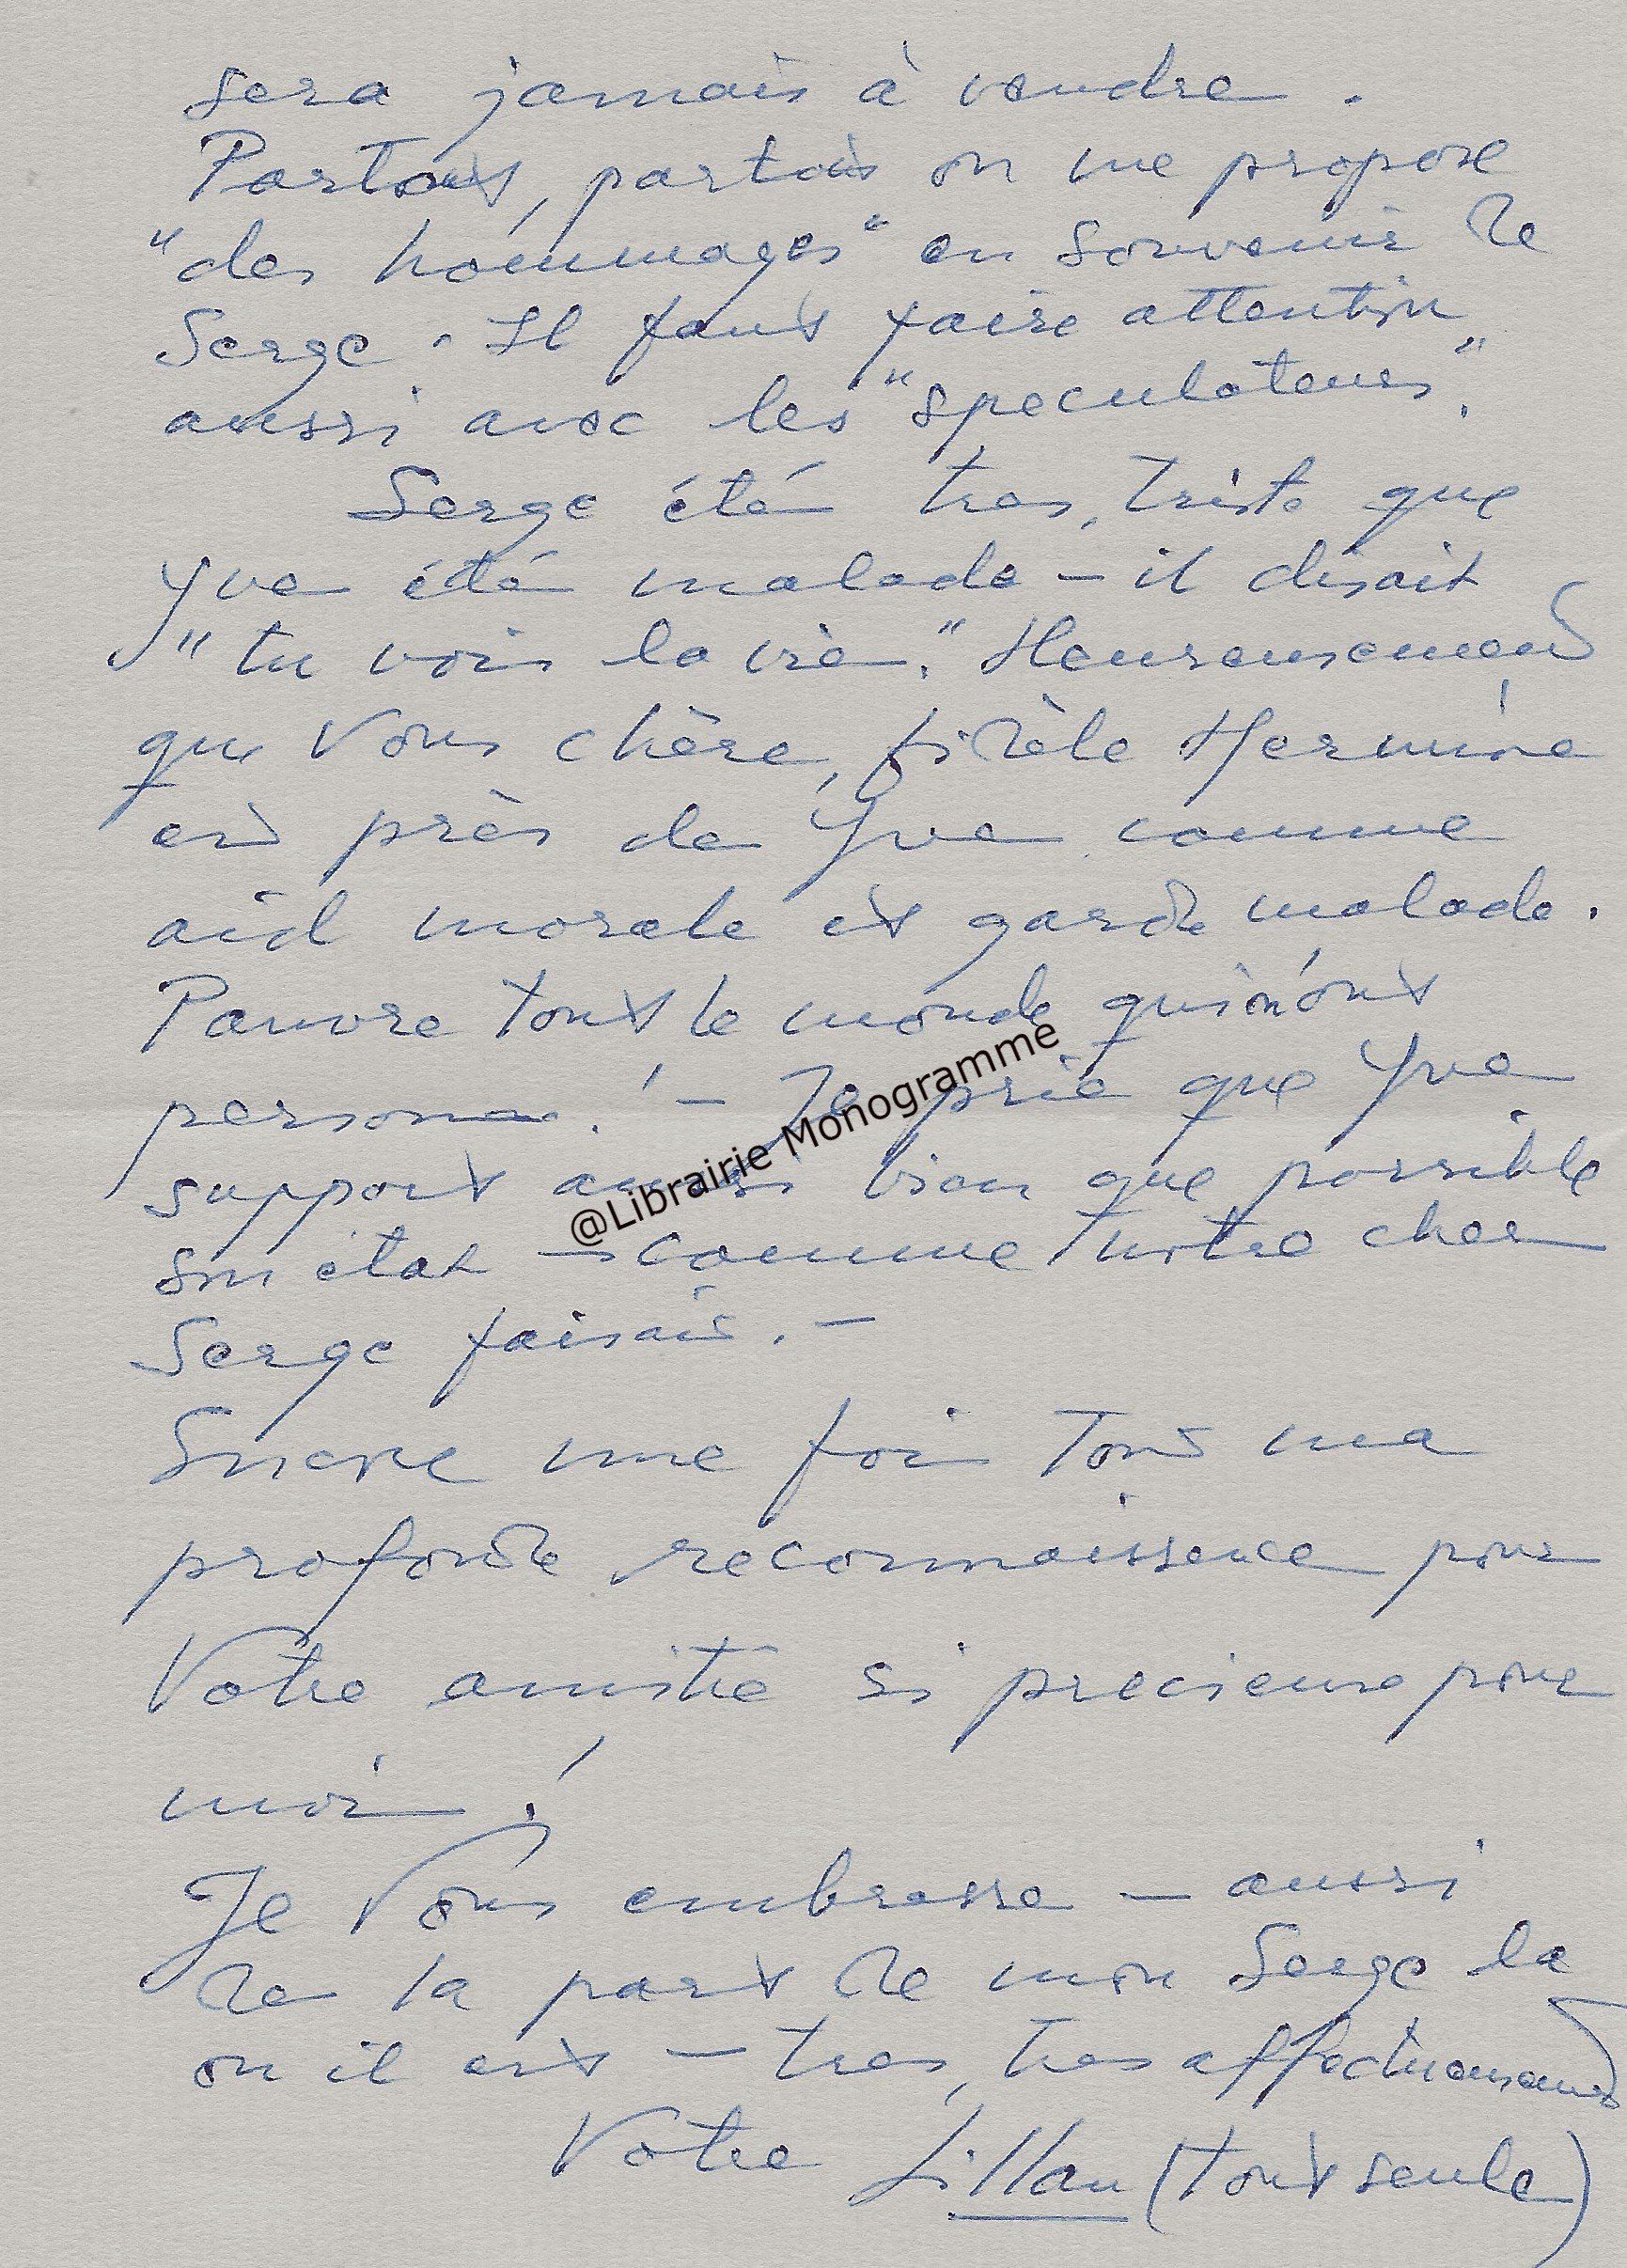 sera jamais à vendre.
Partout, partout on me propose
"des hommages" en souvenir de
Serge. Il faut faire attention
aussi avec les "speculateurs".
Serge été tres, triste que
Yva été malade — il disait
"tu vois la vie." Heureusement
que Vous chère, fidèle Hermine
est près de Yva comme
aid morale et garde malade.
Pauvre tout le monde qui n'ont
persone! — Je prie que Yva
support aussi bien que possible
son état — comme notre cher
Serge faisait. —
Encore une fois tout ma
profonde reconnaissence pour
Votre amitié si precieuse pour
moi!
Je Vous embrasse — aussi
de la part de mon Serge la
ou il est — tres, tres affectueusement
Votre Lillan (tout seule)
@Librairie Monogramme